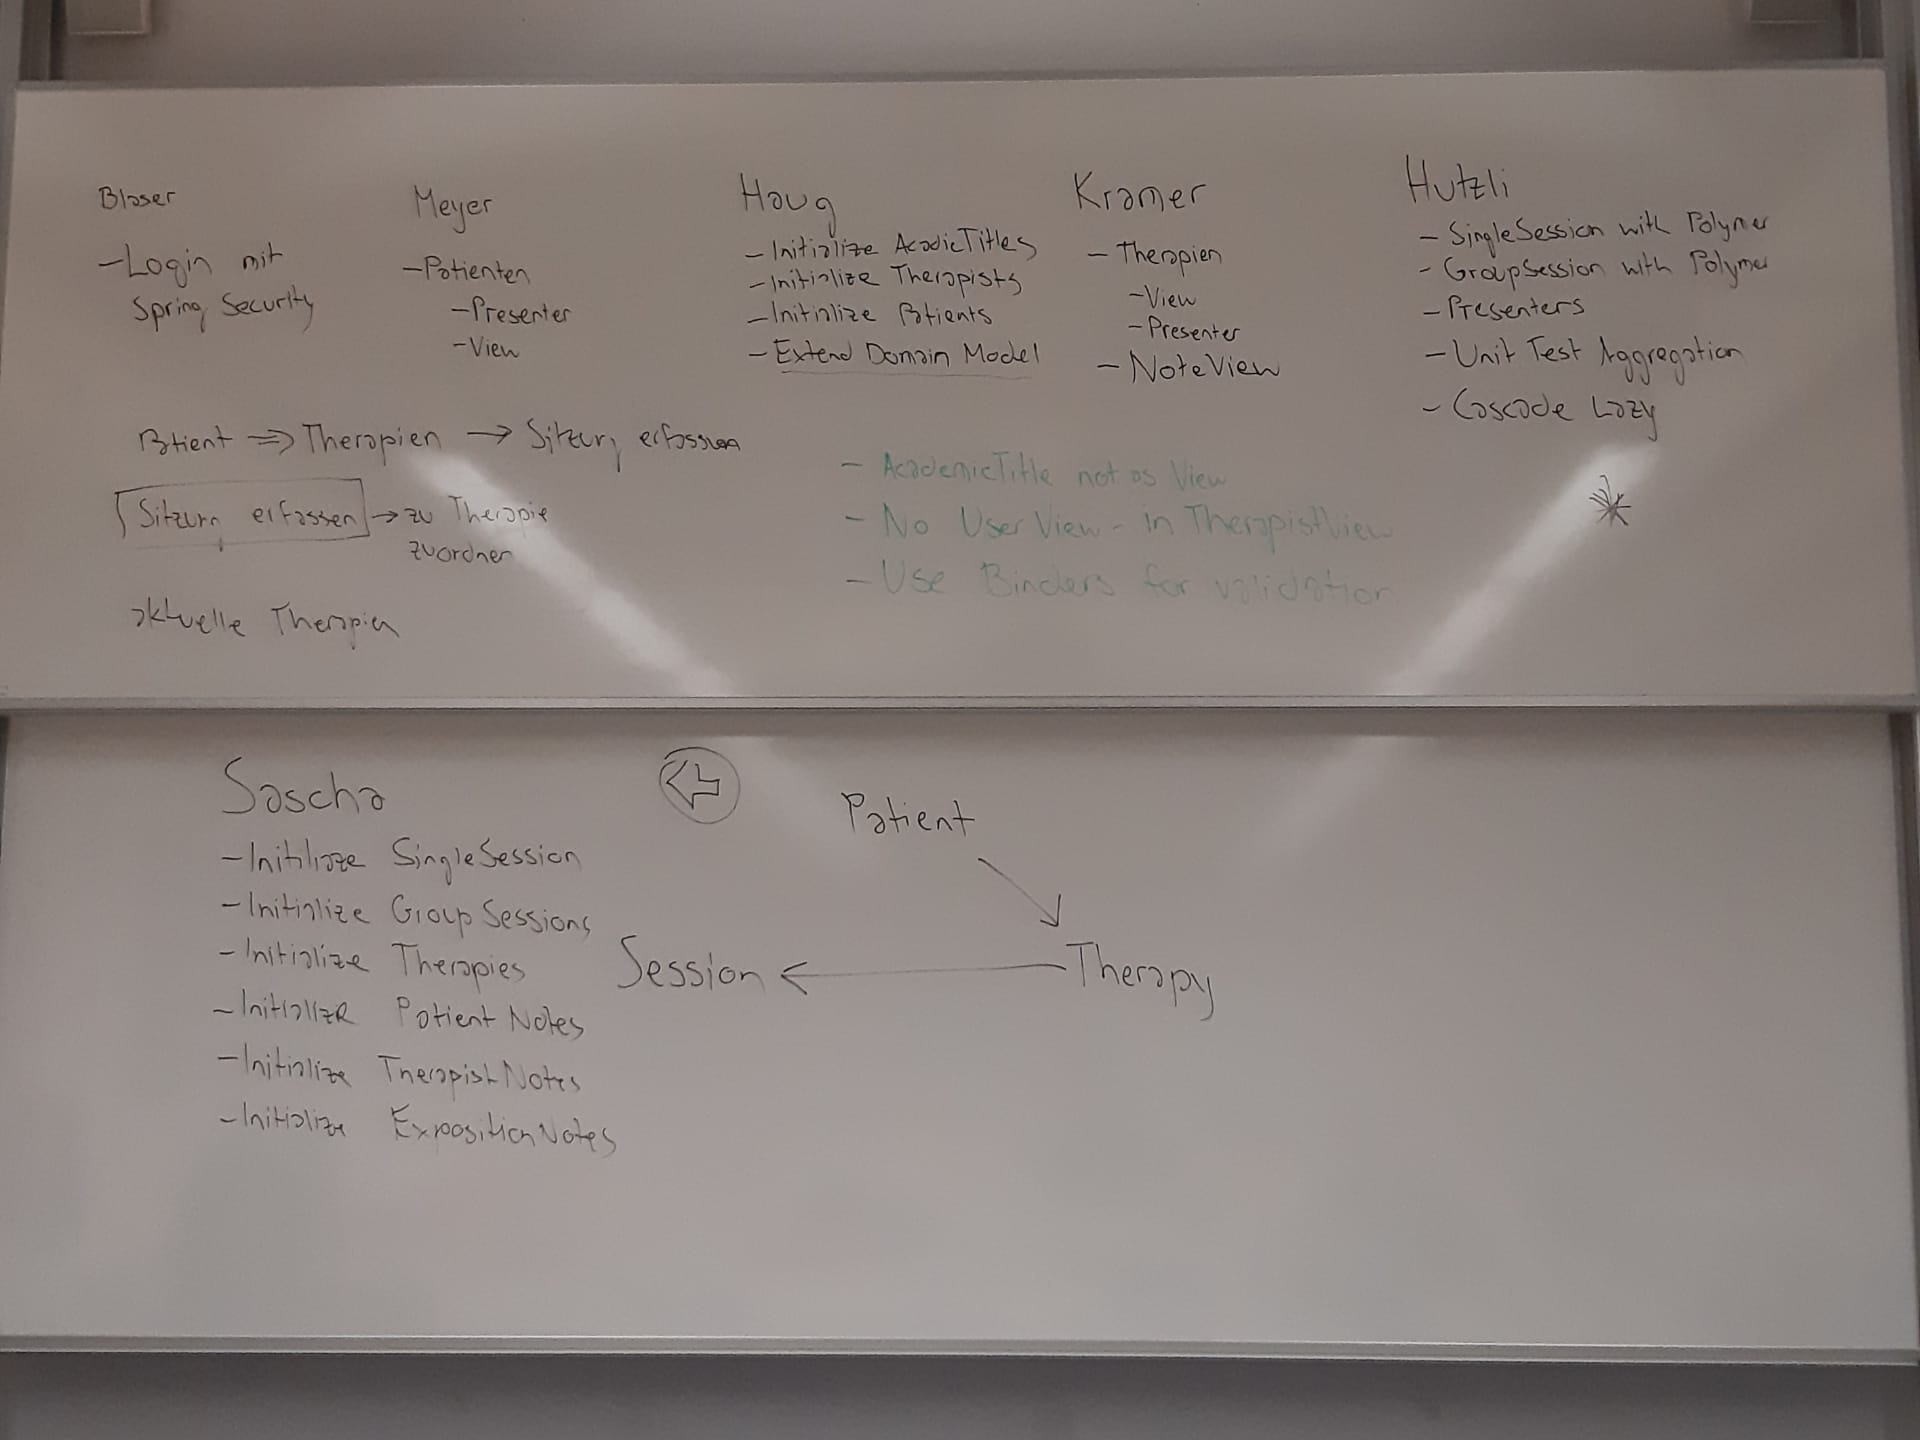 Blaser
- Login mit
Spring Security
Meyer
- Patienten
- Presenter
- View
Haug
- Initialize AcadicTitles
- Initialize Therapists
- Initialize Patients
- Extend Domain Model
Kramer
- Therapien
- View
- Presenter
- NoteView
Hutzli
- SingleSession with Polymer
- GroupSession with Polymer
- Presenters
- Unit Test Aggregation
- Cascade Lazy
Patient => Therapien -> Sitzung erfassen
Sitzung erfassen -> zu Therapie
zuordnen
aktuelle Therapien
- AcademicTitle not as View
- No UserView - in TherapistView
- Use Binders for validation
*
Sascha
- Initiliaze SingleSession
- Initialize GroupSessions
- Initialize Therapies
- Initialize Patient Notes
- Initialize TherapistNotes
- Initialize ExpositionNotes
Patient
Session <- Therapy